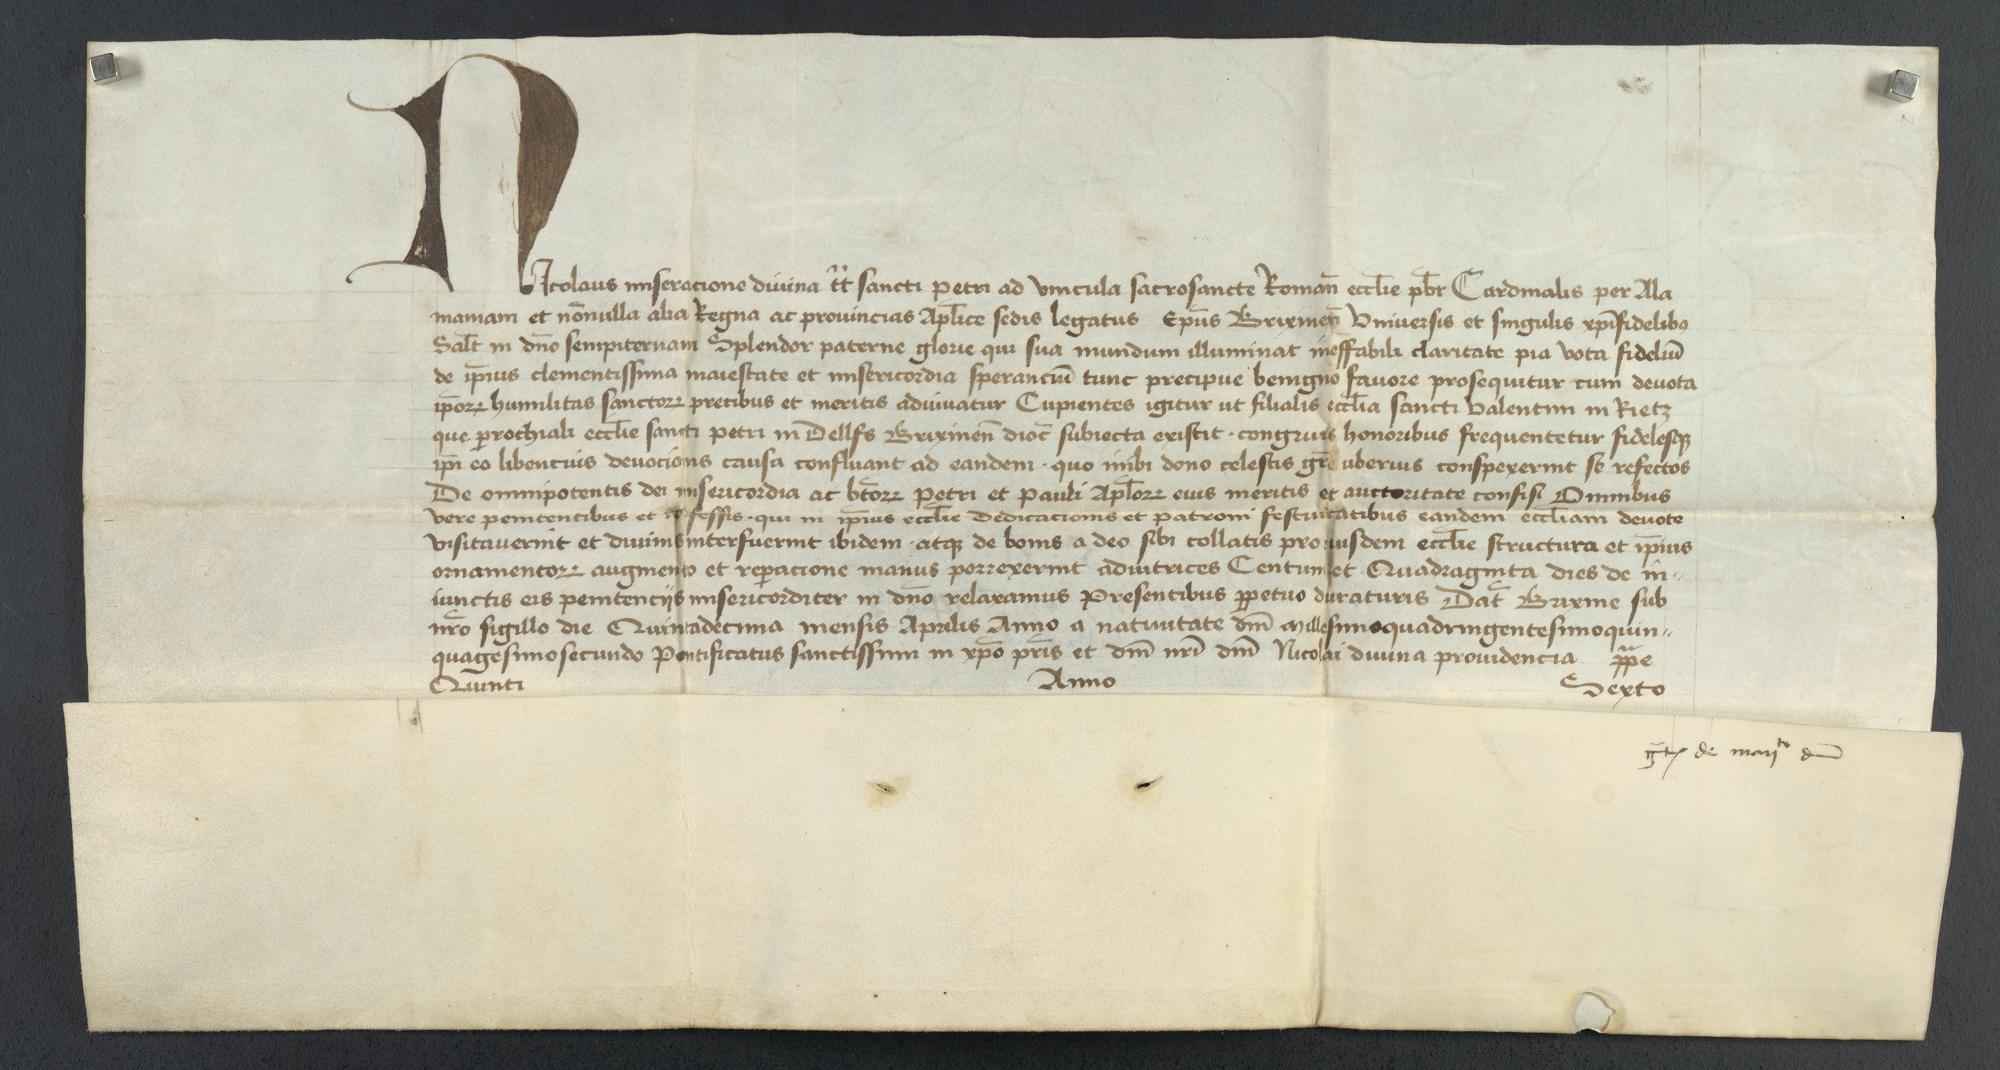 Nicolaus miseracione divina tt̃ sancti Petri ad vincula sacrosancte Romañ eccl̃ie pb̃r Cardinalis per Ala
maniam et nõnulla alia Regna ac provincias Apl̃ice sedis legatus Ep̃us Brixineñ Universis et singulis xp̃ifidelibꝰ
Sal̃t in dño sempiternam Splendor paterne glorie qui sua mundum illuminat ineffabili claritate pia vota fideliũ
de ip̃ius clementissima maiestate et misericordia speranciũ tunc precipue benigno favore prosequitur cum devota
ip̃oꝝ humilitas sanctoꝝ precibus et meritis adiuvatur Cupientes igitur ut filialis eccl̃ia sancti Valentini in Rietz
que ꝑrochiali eccl̃ie sancti petri in Dellfs Brixineñ dioc̃ subiecta existit · congruis honoribus frequentetur fidelesqꝫ
ip̃i eo libencius devocionis causa confluant ad eandem · quo inibi dono celestis gr̃e uberius conspexerint se refectos
De omnipotentis dei misericordia ac bt̃oꝝ Petri et Pauli Apl̃oꝝ eius meritis et auctoritate confisi Omnibus
vere penitentibus et cõfessis · qui in ip̃ius eccl̃ie Dedicacionis et patroni festivitatibus eandem eccl̃iam devote
visitaverint et divinis interfuerint ibidem · atqꝫ de bonis a deo sibi collatis pro eiusdem eccl̃ie structura et ip̃ius
ornamentoꝝ augmento et reꝑacione manus porrexerint adiutrices Centum et Quadraginta dies de in-
iunctis eis penitencijs misericorditer in dño relaxamus Presentibus ꝑpetuo duraturis Dat̃ Brixine sub
nr̃o sigillo die Quintadecima mensis Aprilis Anno a nativitate dñi Millesimoquadringentesimoquin-
quagesimosecundo Pontificatus sanctissimi in xp̃o pr̃is et dñi nr̃i dñi Nicolai divina providencia pp̃e
Quinti Anno Sexto